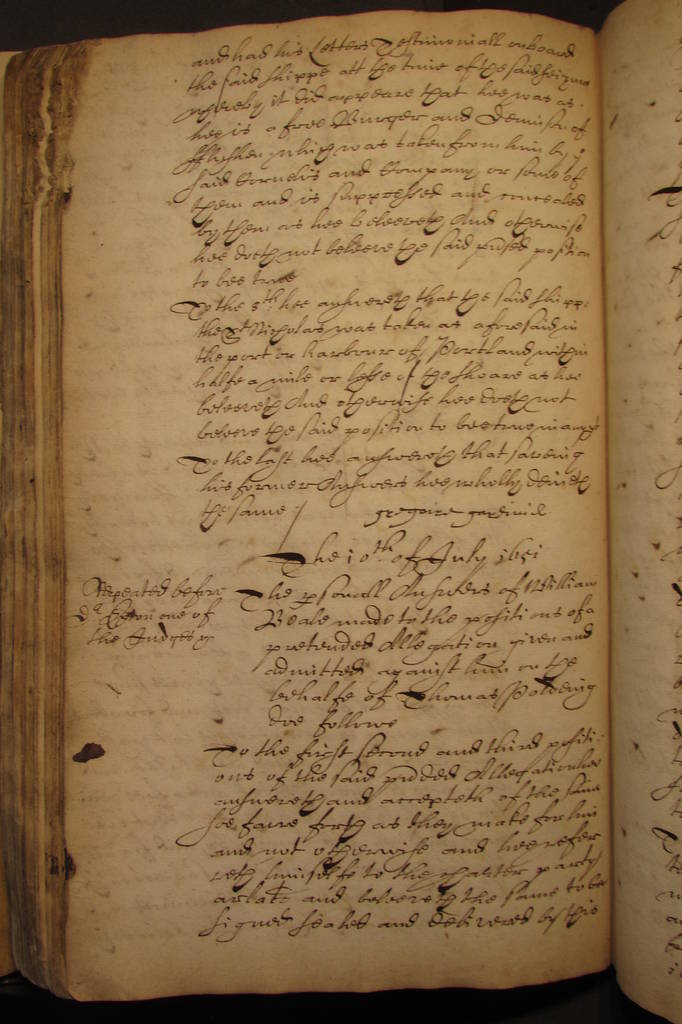 and had his Letters Testimoniall onboard
the said shippe att the time of the said seizure
whereby it did appeare that hee was as
hee is a free Burger and Dennison of
fflushen which was taken from him by ye
said Cornelis and Company or some of
them and is suppressed and concealed
by them as hee beleeveth And otherwise
hee doeth not beleeve the said position
to bee true
To the 8th hee answereth that the said shippe
the St Nicholas was taken as aforesaid in
the port or harbour of Portland within
halfe a mile or lesse of the shoare as hee
beleeveth And otherwise hee doeth not
beleeve the said position to bee true in any pt
To the last hee answereth that saveing
his former Answers hee wholly denieth
the same /
gregoire
The 10th of July 1651
Repeated before
Dr one of
the Judges
The psonall Answers of William
Beale made to the positions of a
pretended Allegation given and
admitted against him on the
behalfe of Thomas
doe followe
To the first second and third positi:
ons of the said Allegation hee
answereth and accepteth of the same
soe farre forth as they make for him
and not otherwise and hee refer
reth himselfe to the charter party
arlate and beleeveth the same to be
signed sealed and delivered by this